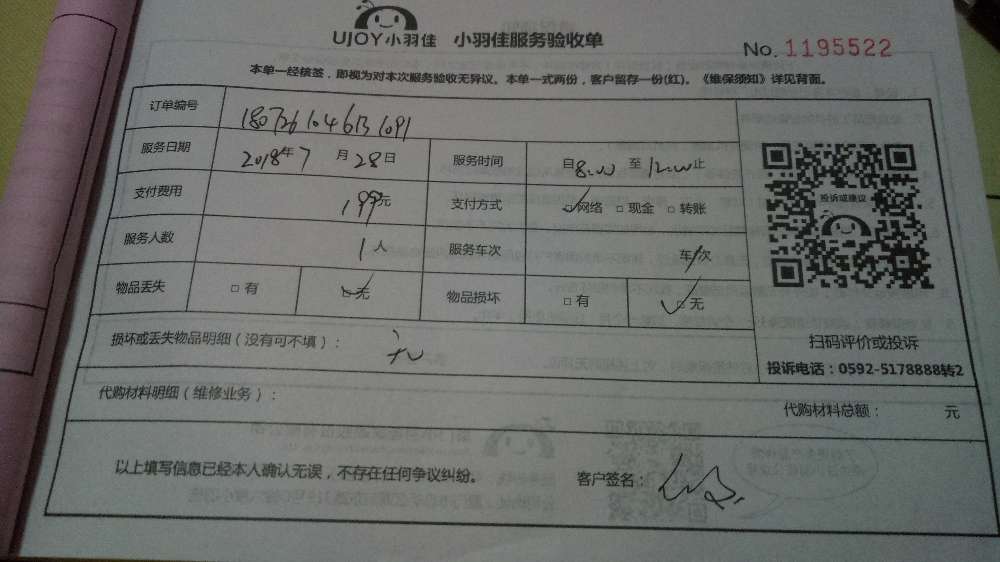 UJOY小羽佳 小羽佳服务验收单
No. 1195522
本单一经核签，即视为对本次服务验收无异议。本单一式两份，客户留存一份(红)。《维保须知》详见背面。
订单编号
服务日期 2018年7月28日 服务时间 自8:00至12:00止
支付费用 199元 支付方式 ☑网络 □现金 □转账
服务人数 1人 服务车次 车/次
物品丢失 □有 ☑无 物品损坏 □有 ☑无
投诉或建议
损坏或丢失物品明细（没有可不填）： 无
扫码评价或投诉
投诉电话：0592-5178888转2
代购材料明细（维修业务）： 代购材料总额： 元
以上填写信息已经本人确认无误，不存在任何争议纠纷。 客户签名：